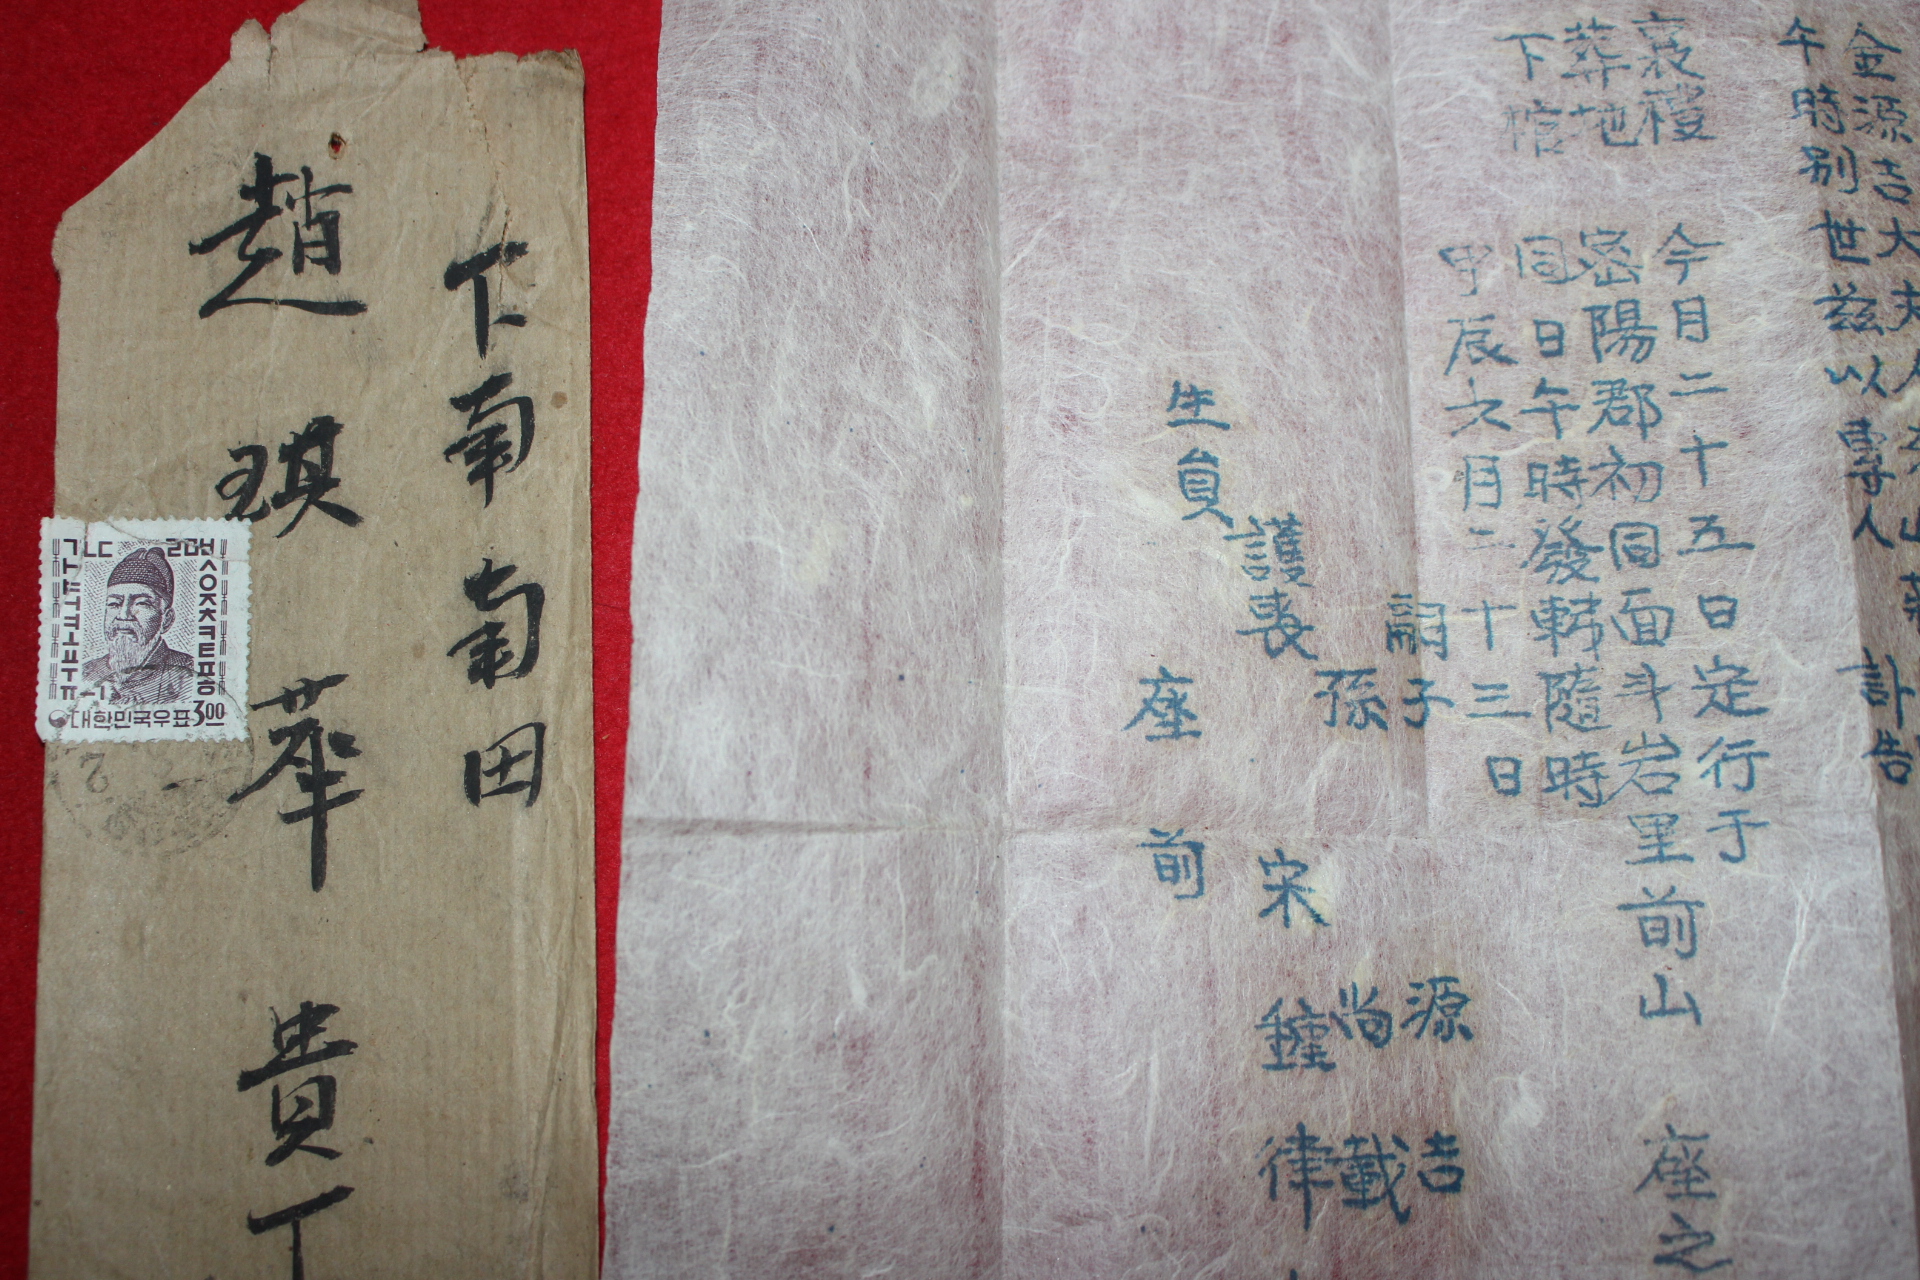 金源吉大夫人
午時別世玆以專人 訃告
襄禮 今月二十五日定行于
葬地 密陽郡初同面斗岩里前山 座之
下棺 同日午時發靷隨時
甲辰六月二十三日
嗣子 源吉
孫 尙載
護喪 宋鍾律
生員 座前
下南面
趙琪華貴下
대한민국우표 3.00